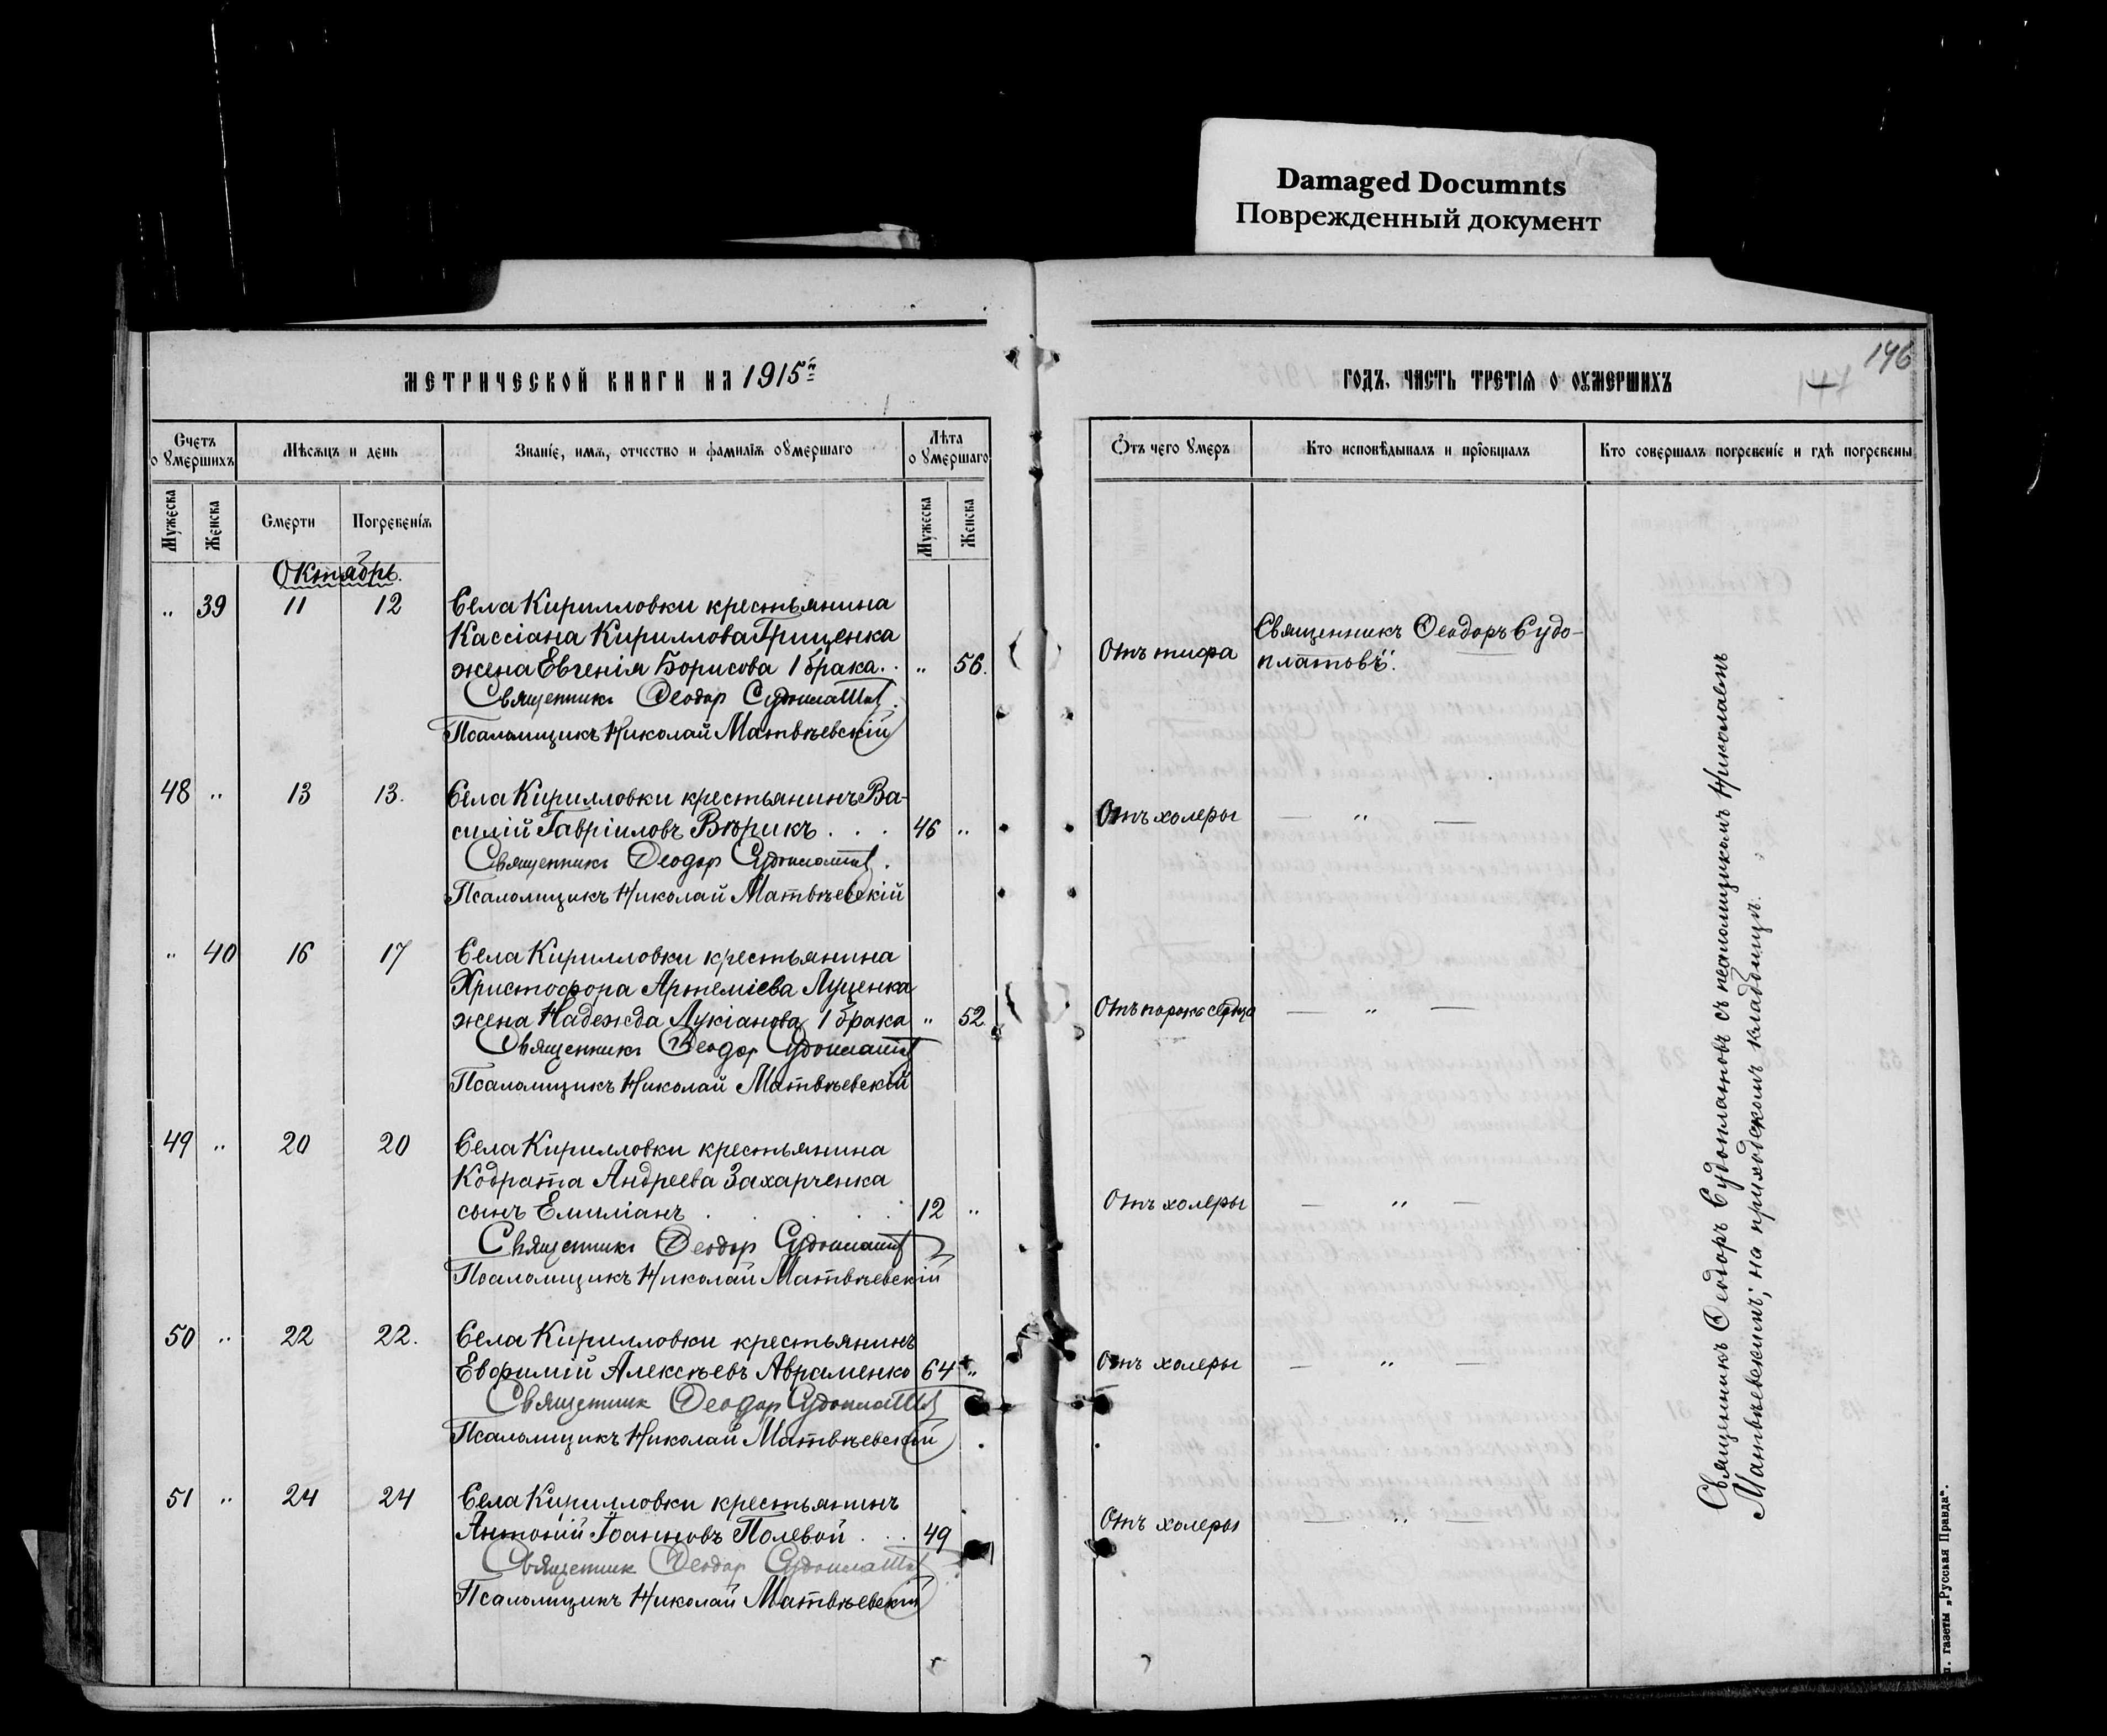 Damaged Documnts
Поврежденный документ
146
147
МЕТРИЧЕСКОЙ КНИГИ НА 1915й
ГОДЪ, ЧАСТЬ ТРЕТІЯ О ОУМЕРШИХЪ
Счетъ о умершихъ
Мѣсяцъ и день
Званіе, имя, отчество и фамилія оумершаго
Лѣта о умершаго
Ѿтъ чего умеръ
Кто исповѣдывалъ и пріобщалъ
Кто совершалъ погребеніе и гдѣ погребены
Мужеска
Женска
Смерти
Погребенія
Мужеска
Женска
Октябрь.
„ 39 11 12 Села Кирилловки крестьянина
Кассіана Кириллова Гриценка
жена Евгенія Борисова 1 брака. . „ 56. Отъ тифа Священникъ Ѳеодоръ Судо-
платовъ.
Священникъ Ѳеодор Судоплатов.
Псаломщикъ Николай Матвѣевскій
48 „ 13 13. Села Кирилловки крестьянинъ Ва-
силій Гавріиловъ Вѣрикъ . . . 46 „ Отъ холеры — „ —
Священникъ Ѳеодор Судоплатов.
Псаломщикъ Николай Матвѣевскій
„ 40 16 17 Села Кирилловки крестьянина
Христофора Артеміева Луценка
жена Надежда Лукіанова 1 брака „ 52 Отъ порока сердца — „ —
Священникъ Ѳеодор Судоплатов
Псаломщикъ Николай Матвѣевскій
49 „ 20 20 Села Кирилловки крестьянина
Кодрата Андреева Захарченка
сынъ Емиліанъ . . . . 12 „ Отъ холеры — „ —
Священникъ Ѳеодор Судоплатов
Псаломщикъ Николай Матвѣевскій
50 „ 22 22. Села Кирилловки крестьянинъ
Евфимій Алексѣевъ Авраменко 64 „ Отъ холеры — „ —
Священник Ѳеодор Судоплатов
Псаломщикъ Николай Матвѣевскій
51 „ 24 24 Села Кирилловки крестьянинъ
Антоній Іоанновъ Полевой . . . 49 Отъ холеры — „ —
Священник Ѳеодор Судоплатов
Псаломщикъ Николай Матвѣевскій
Священникъ Ѳеодоръ Судоплатовъ съ псаломщикомъ Николаемъ
Матвѣевскимъ; на приходскомъ кладбищѣ.
газеты „Русская Правда".